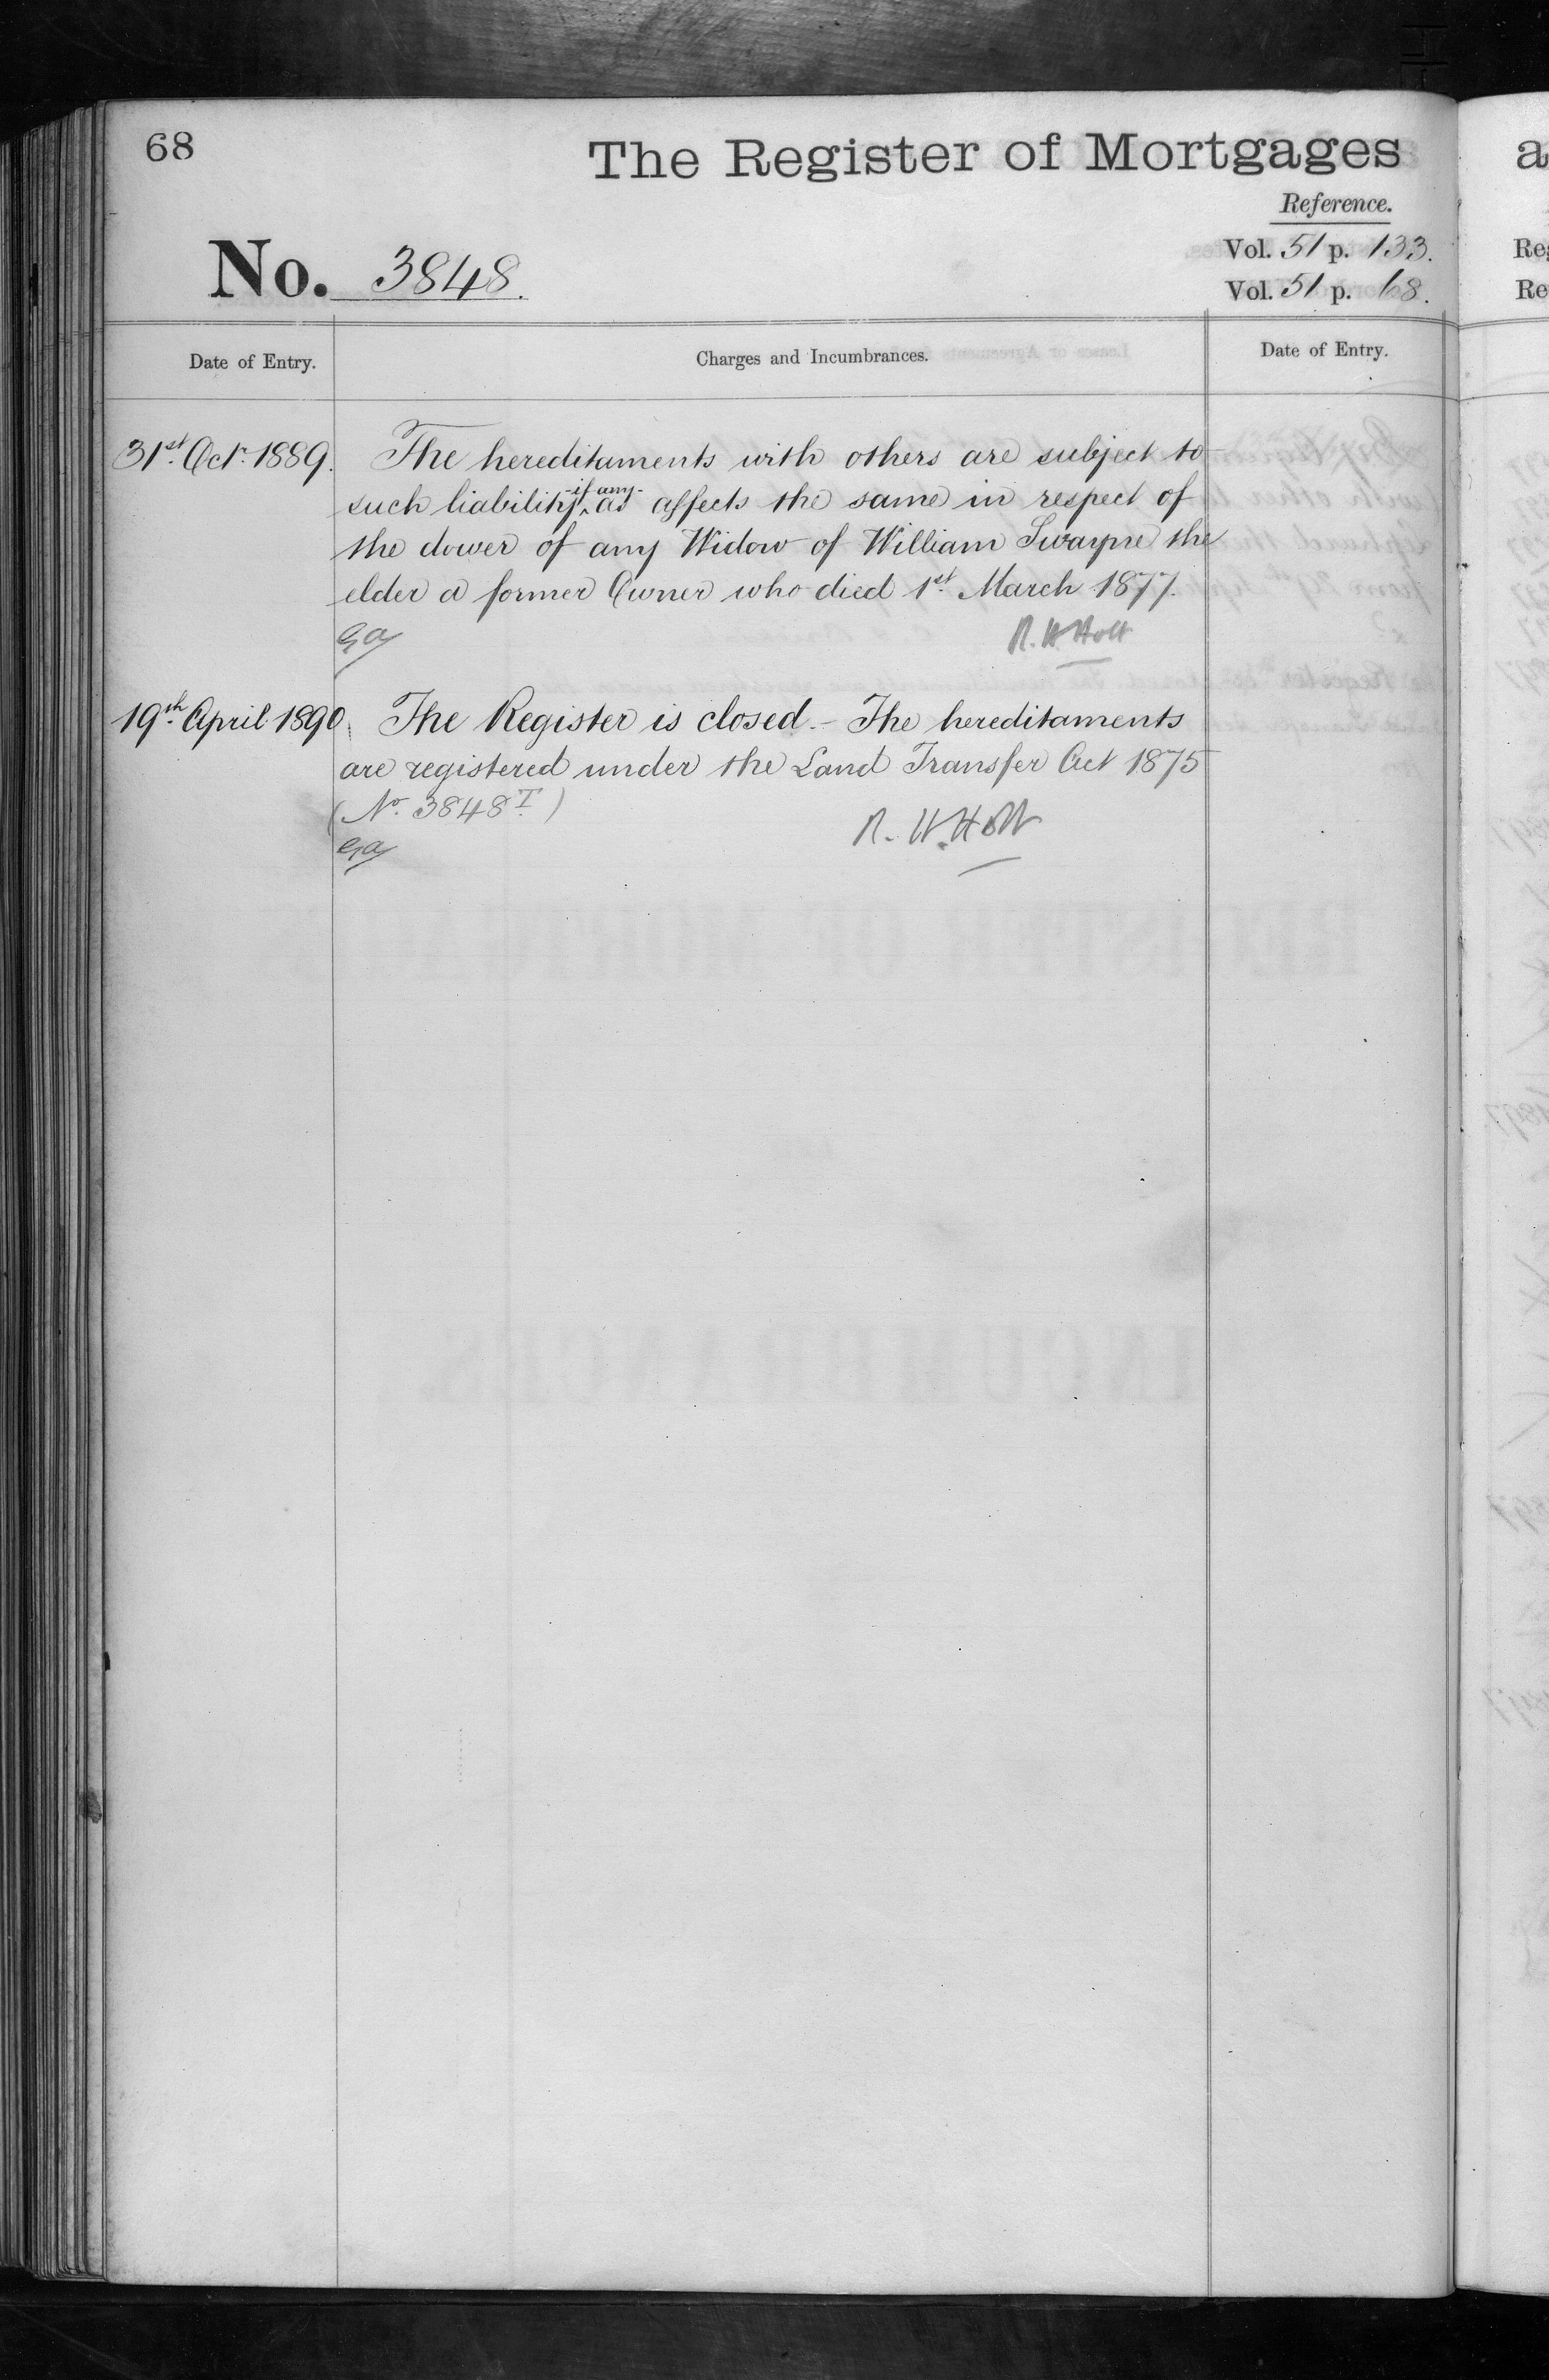 68
The Register of Mortgages
Reference.
Vol. 51 p. 133.
No. 3848.
Vol. 51 p. 68.
Date of Entry.
Charges and Incumbrances.
Date of Entry.
31st. Octr. 1889.
The hereditaments with others are subject to
-if any-
such liability ^ as affects the same in respect of
the dower of any Widow of William Swayne the
elder a former Owner who died 1st. March 1877.
R. H. Holt
19th. April 1890.
The Register is closed. - The hereditaments
are registered under the Land Transfer Act 1875
(No. 3848T.)
R. H. Holt
a
Reg
Re